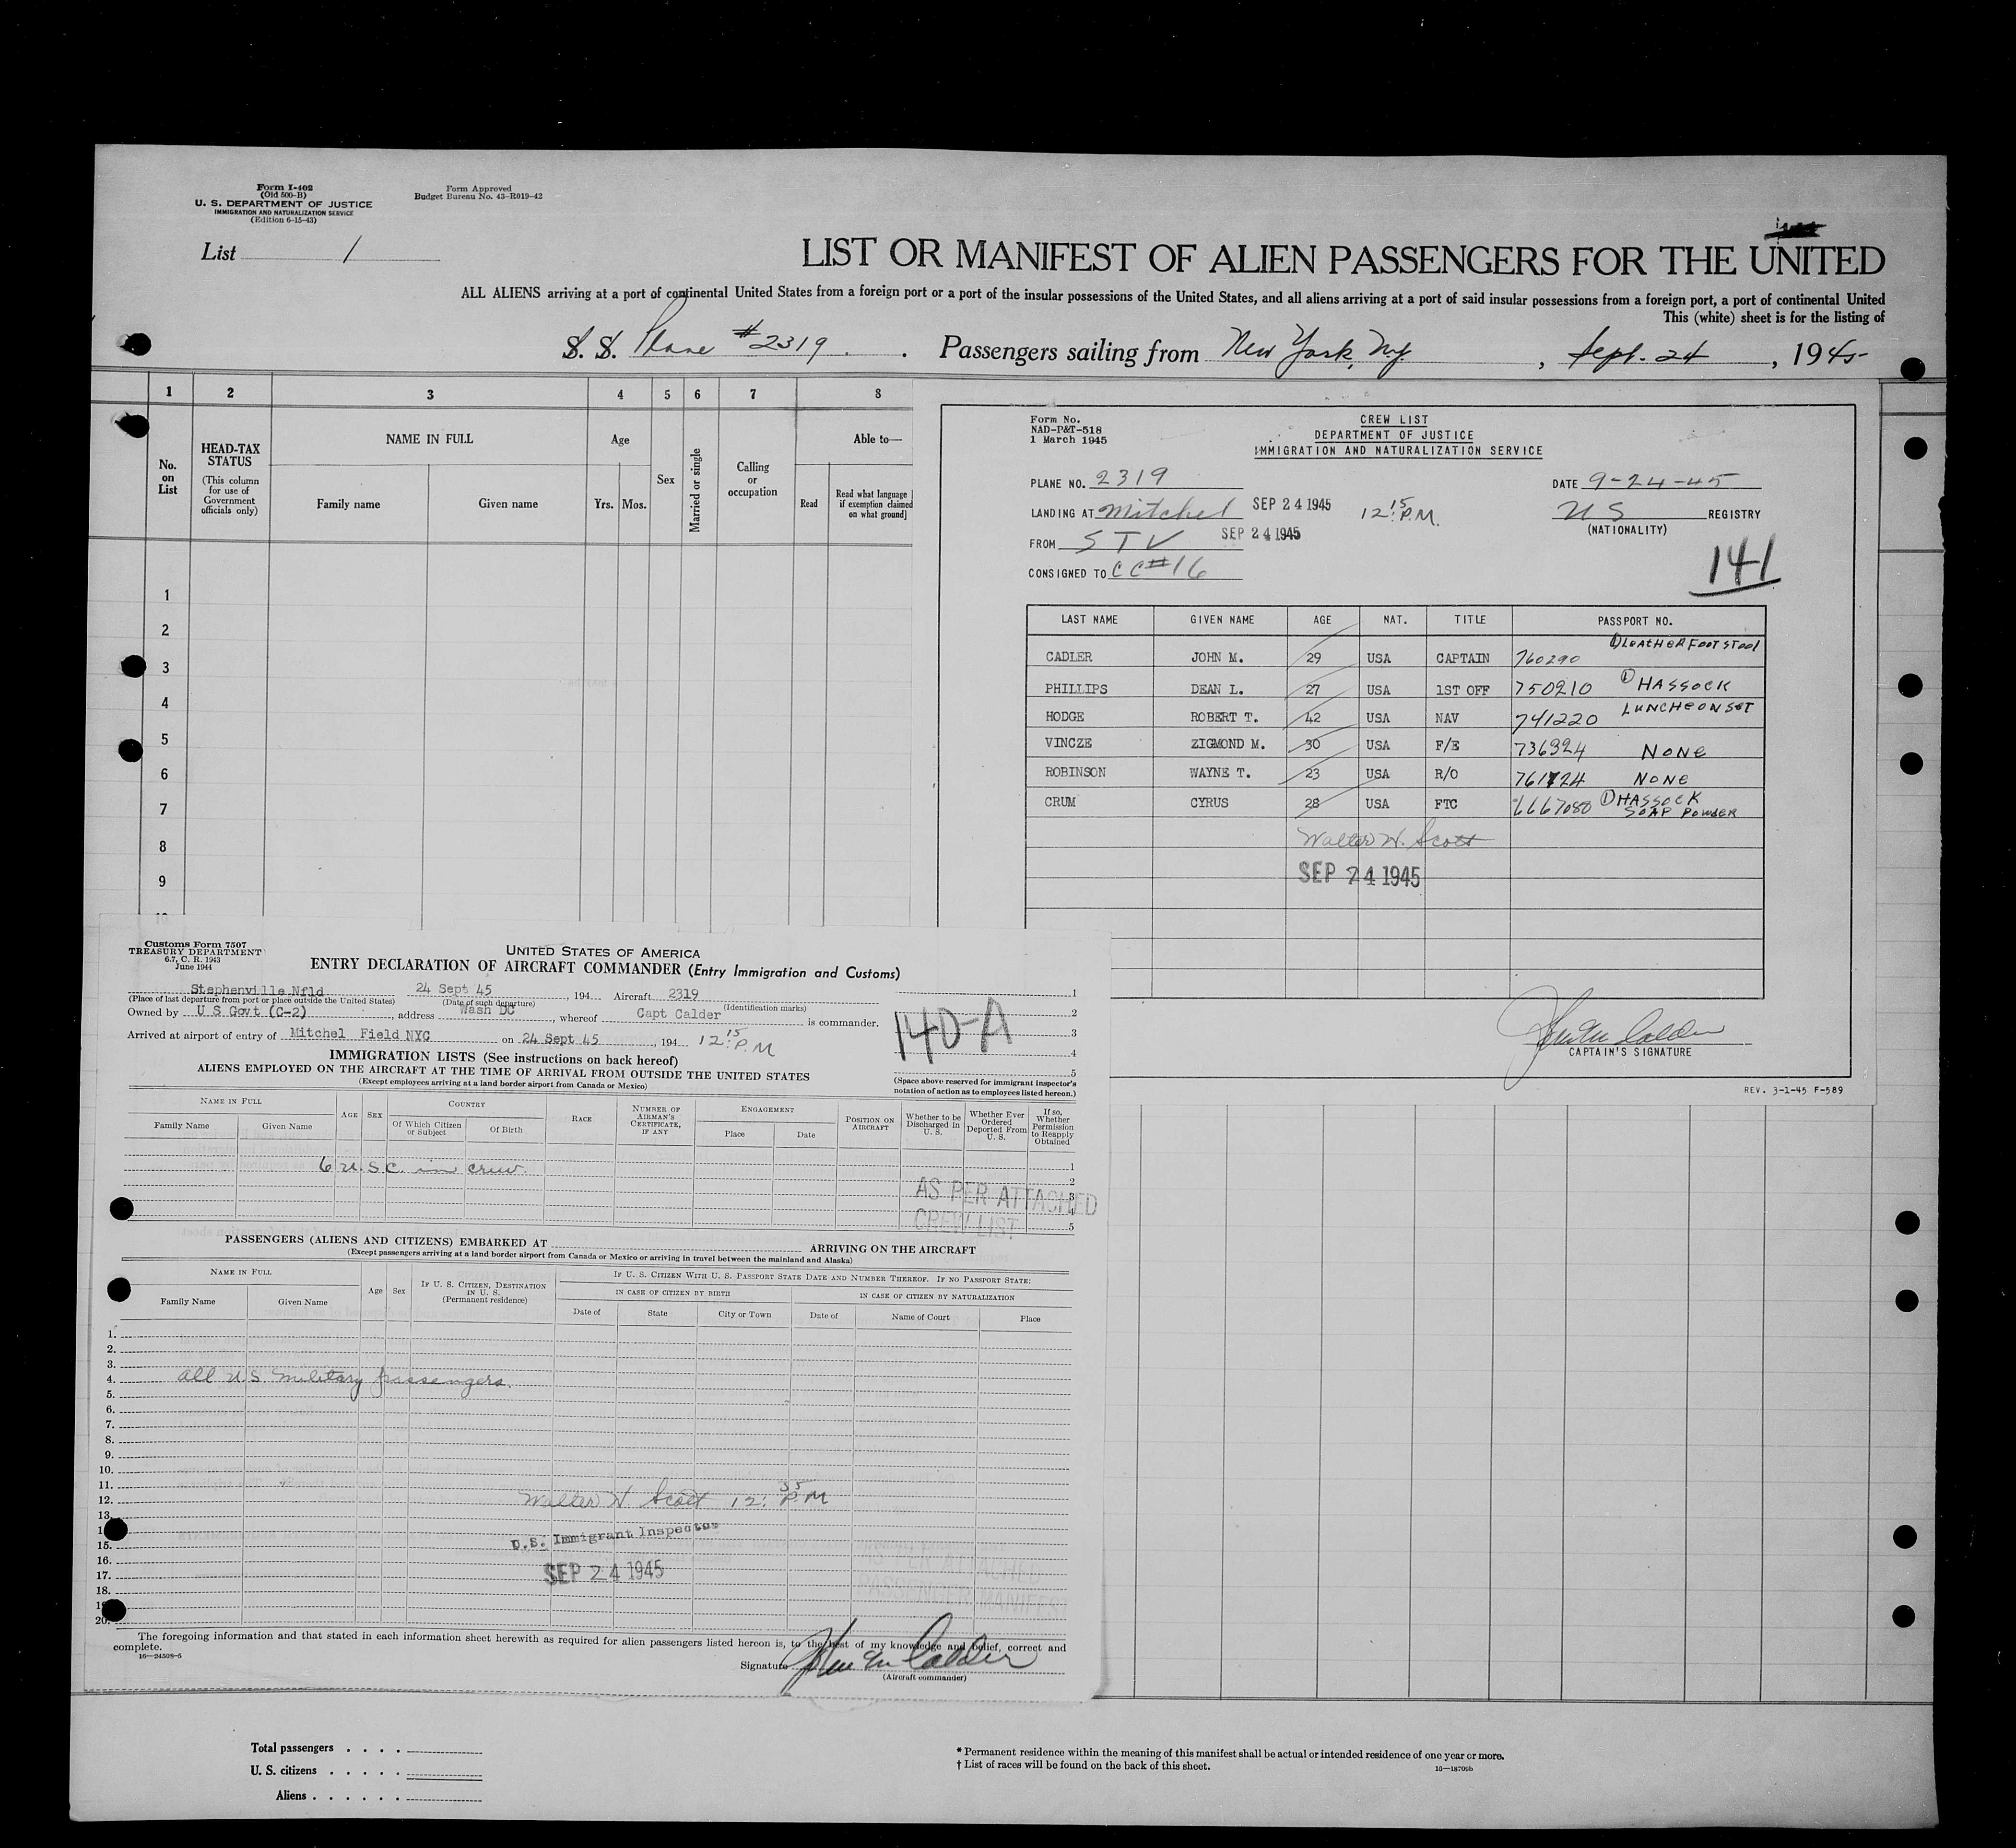 Form I-402
(Old 500-B)
U. S. DEPARTMENT OF JUSTICE
IMMIGRATION AND NATURALIZATION SERVICE
(Edition 6-15-43)
Form Approved
Budget Bureau No. 43-R019-42
List 1
LIST OR MANIFEST OF ALIEN PASSENGERS FOR THE UNITED
ALL ALIENS arriving at a port of continental United States from a foreign port or a port of the insular possessions of the United States, and all aliens arriving at a port of said insular possessions from a foreign port, a port of continental United
This (white) sheet is for the listing of
S. S. Plane #2319. Passengers sailing from New York, N.Y., Sept. 24, 1945
1 2 3 4 5 6 7 8
No. on List
HEAD-TAX STATUS
(This column for use of Government officials only)
NAME IN FULL
Family name Given name
Age
Yrs. Mos.
Sex
Married or single
Calling or occupation
Able to—
Read
Read what language
if exemption claimed
on what ground]
1
2
3
4
5
6
7
8
9
Form No.
NAD-P&T-518
1 March 1945
CREW LIST
DEPARTMENT OF JUSTICE
IMMIGRATION AND NATURALIZATION SERVICE
PLANE NO. 2319 DATE 9-24-45
LANDING AT Mitchel SEP 24 1945 12:15 P.M. US REGISTRY
(NATIONALITY)
FROM STV SEP 24 1945
CONSIGNED TO CC#16
141
LAST NAME GIVEN NAME AGE NAT. TITLE PASSPORT NO.
CADLER JOHN M. 29 USA CAPTAIN 760290 (1) LEATHER FOOT STOOL
PHILLIPS DEAN L. 27 USA 1ST OFF 750210 (1) HASSOCK
HODGE ROBERT T. 42 USA NAV 741220 LUNCHEON SET
VINCZE ZIGMOND M. 30 USA F/E 736324 NONE
ROBINSON WAYNE T. 23 USA R/O 761724 NONE
CRUM CYRUS 28 USA FTC 6667080 (1) HASSOCK
SOAP POWDER
Walter W. Scott
SEP 24 1945
John M Calder
CAPTAIN'S SIGNATURE
REV. 3-1-45 F-589
Customs Form 7507
TREASURY DEPARTMENT
6.7, C. R. 1943
June 1944
UNITED STATES OF AMERICA
ENTRY DECLARATION OF AIRCRAFT COMMANDER (Entry Immigration and Customs)
Stephenville Nfld 24 Sept 45, 194 Aircraft 2319
(Place of last departure from port or place outside the United States) (Date of such departure) (Identification marks)
Owned by U S Govt (C-2), address Wash DC, whereof Capt Calder is commander.
Arrived at airport of entry of Mitchel Field NYC on 24 Sept 45, 194 12:15 P.M
140-A
1
2
3
4
5
(Space above reserved for immigrant inspector's
notation of action as to employees listed hereon.)
IMMIGRATION LISTS (See instructions on back hereof)
ALIENS EMPLOYED ON THE AIRCRAFT AT THE TIME OF ARRIVAL FROM OUTSIDE THE UNITED STATES
(Except employees arriving at a land border airport from Canada or Mexico)
NAME IN FULL
Family Name Given Name
AGE SEX
COUNTRY
Of Which Citizen or Subject Of Birth
RACE
NUMBER OF AIRMAN'S CERTIFICATE, IF ANY
ENGAGEMENT
Place Date
POSITION ON AIRCRAFT
Whether to be Discharged in U. S.
Whether Ever Ordered Deported From U. S.
If so, Whether Permission to Reapply Obtained
6 U.S.C. in crew.
1
2
3
4
5
AS PER ATTACHED
CREW LIST
PASSENGERS (ALIENS AND CITIZENS) EMBARKED AT ARRIVING ON THE AIRCRAFT
(Except passengers arriving at a land border airport from Canada or Mexico or arriving in travel between the mainland and Alaska)
NAME IN FULL
Family Name Given Name
Age Sex
IF U. S. CITIZEN, DESTINATION IN U. S.
(Permanent residence)
IF U. S. CITIZEN WITH U. S. PASSPORT STATE DATE AND NUMBER THEREOF. IF NO PASSPORT STATE:
IN CASE OF CITIZEN BY BIRTH IN CASE OF CITIZEN BY NATURALIZATION
Date of State City or Town Date of Name of Court Place
1.
2.
3.
4. all U.S. military passengers.
5.
6.
7.
8.
9.
10.
11.
12. Walter W Scott 12:35 P.M
13.
15. U.S. Immigrant Inspector
16.
17. SEP 24 1945
18.
20.
AS PER ATTACHED
PASSENGER MANIFEST
The foregoing information and that stated in each information sheet herewith as required for alien passengers listed hereon is, to the best of my knowledge and belief, correct and
complete.
16—24508-5
Signature John M Calder
(Aircraft commander)
Total passengers . . . .
U. S. citizens . . . . .
Aliens . . . . . .
* Permanent residence within the meaning of this manifest shall be actual or intended residence of one year or more.
† List of races will be found on the back of this sheet.
16—18700b